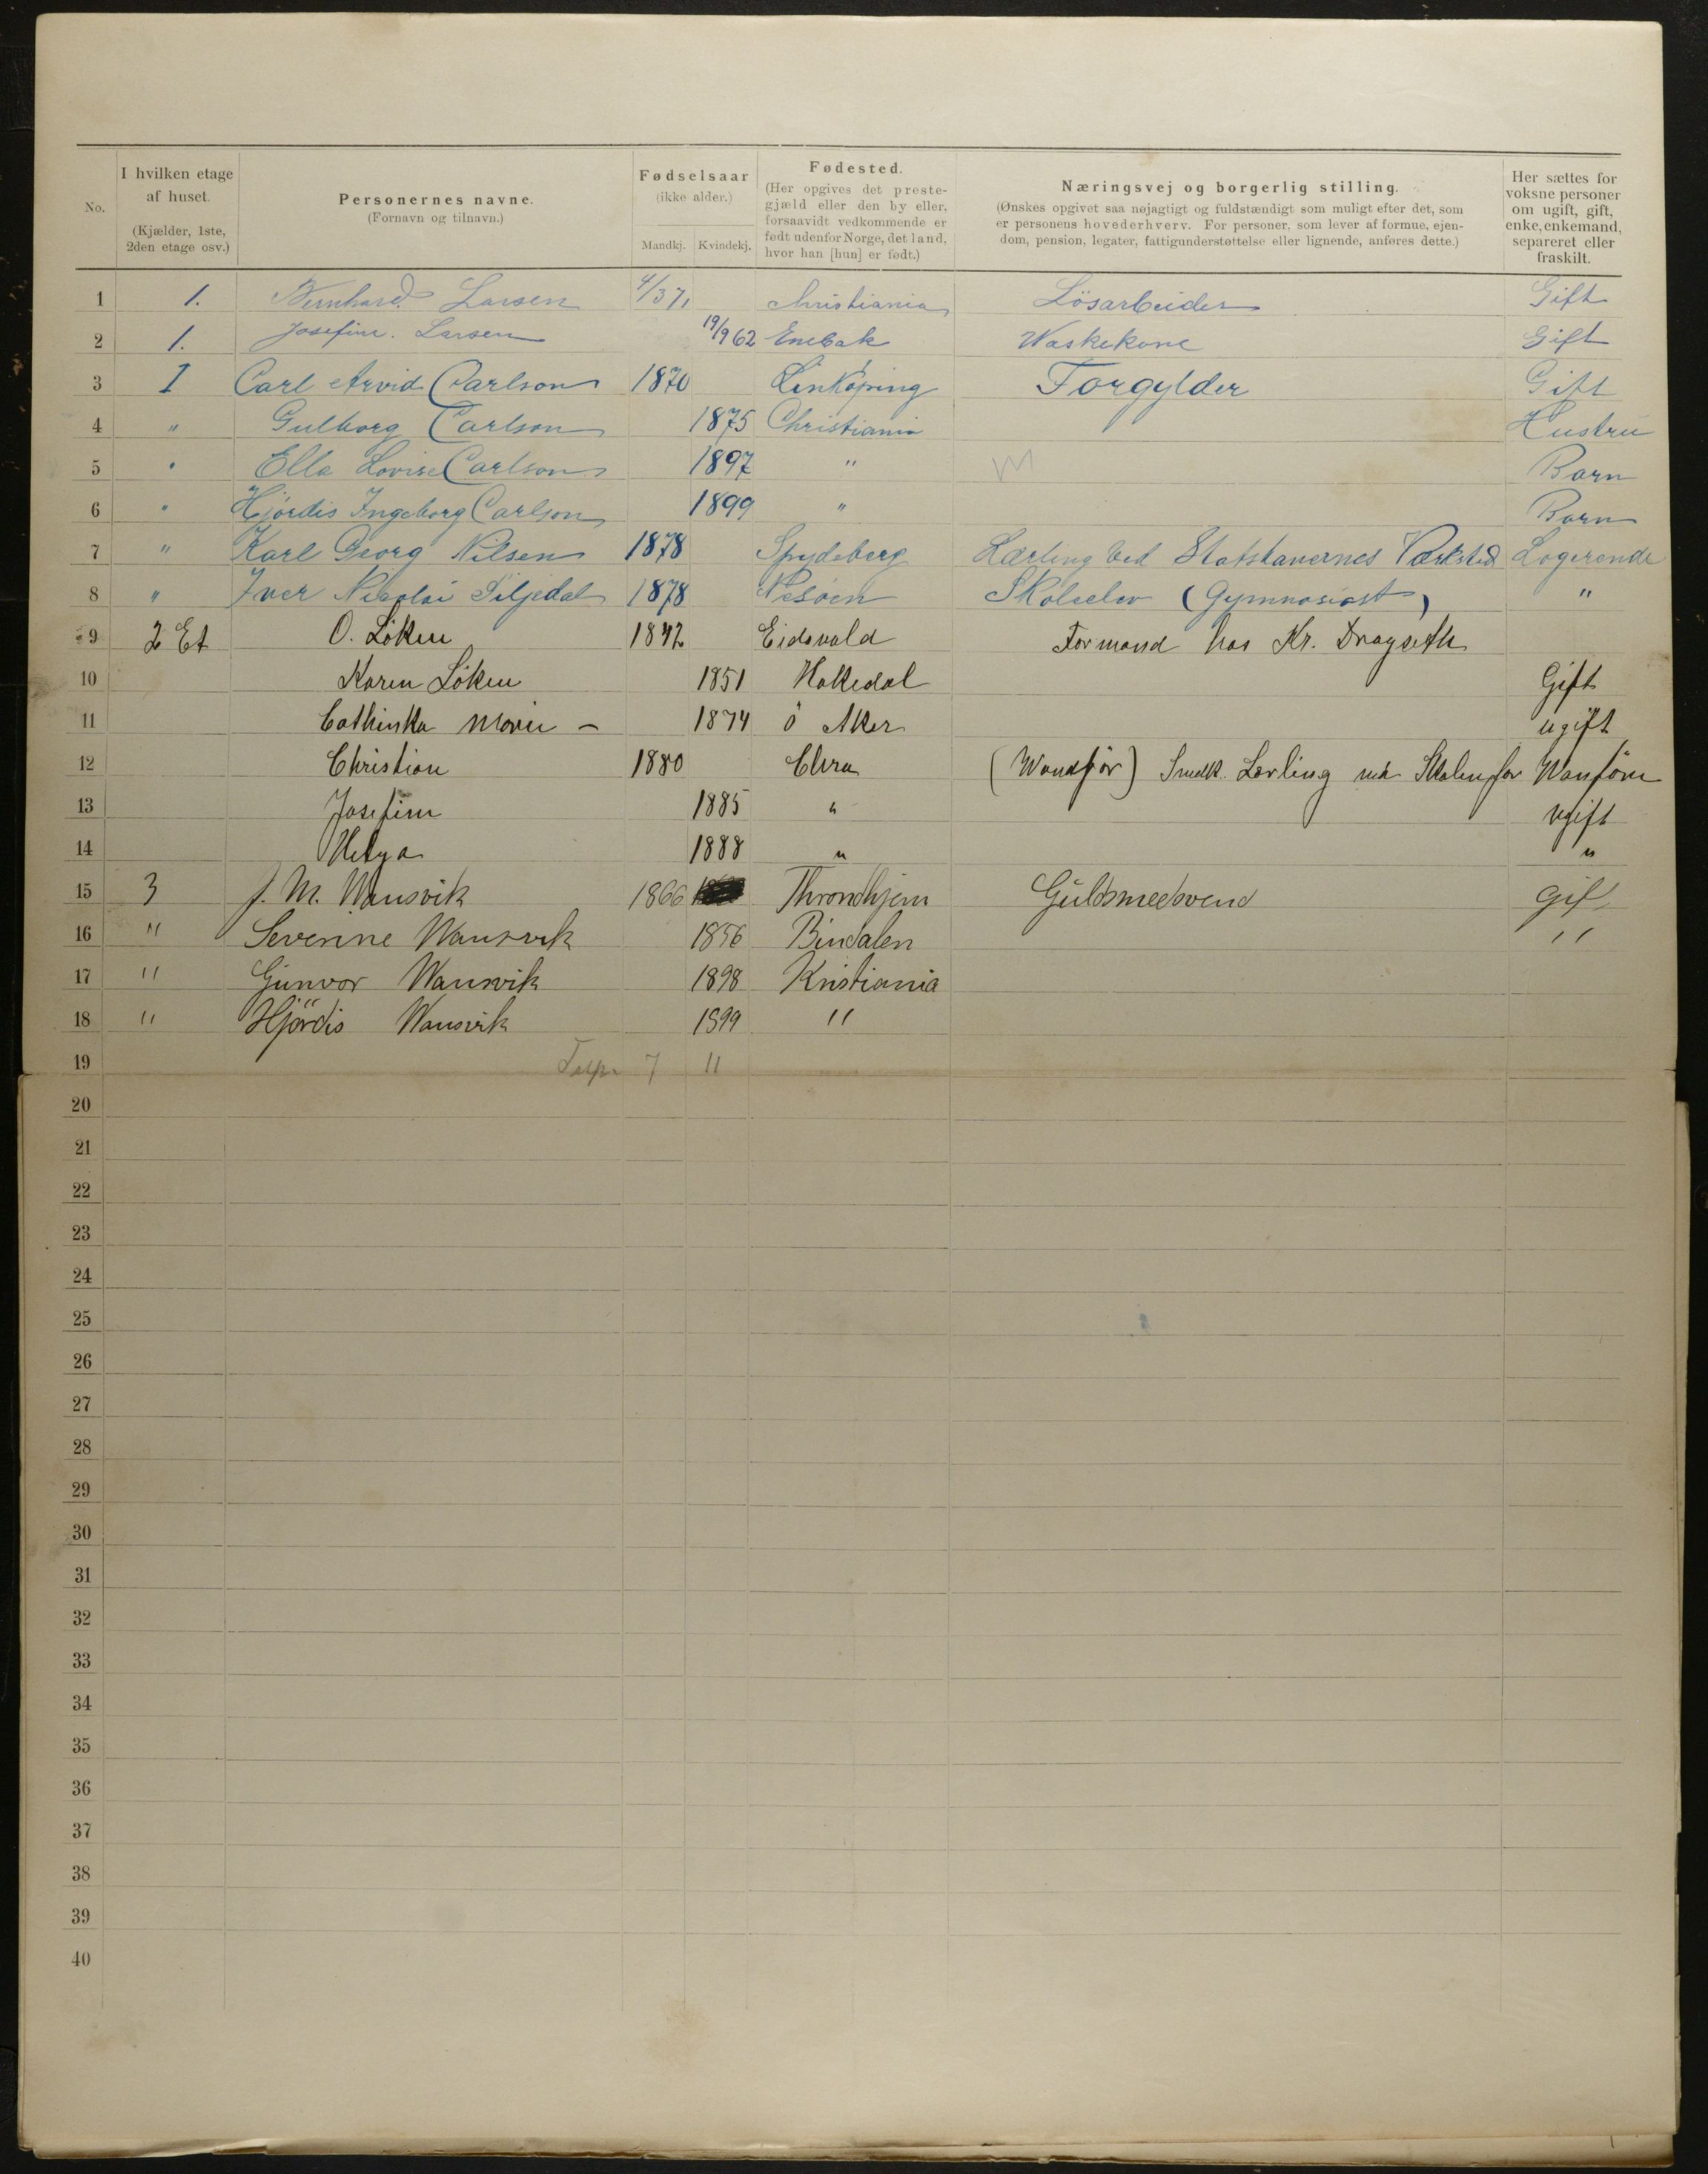 No.
I hvilken etage af huset. (Kjælder, 1ste, 2den etage osv.)
Personernes navne. (Fornavn og tilnavn.)
Fødselsaar (ikke alder.)
Mandkj. Kvindekj.
Fødested. (Her opgives det prestegjæld eller den by eller, forsaavidt vedkommende er født udenfor Norge, det land, hvor han [hun] er født.)
Næringsvej og borgerlig stilling. (Ønskes opgivet saa nøjagtigt og fuldstændigt som muligt efter det, som er personens hovederhverv. For personer, som lever af formue, ejendom, pension, legater, fattigunderstøttelse eller lignende, anføres dette.)
Her sættes for voksne personer om ugift, gift, enke, enkemand, separeret eller fraskilt.
1 1. Bernhard Larsen 4/3 71 Christiania Lösarbeider Gift
2 1. Josefine. Larsen 19/9 62 Enebak Waskekone Gift
3 I Carl Arvid Carlson 1870 Linköping Forgylder Gift
4 " Gulborg Carlson 1875 Christiania Hustru
5 " Ella Lovise Carlson 1897 " Barn
6 " Hjördis Ingeborg Carlson 1899 " Barn
7 " Karl Georg Nilsen 1878 Spydeberg Lærling ved Statsbanernes Værksted Logerende
8 " Iver Nicolai Siljedal 1878 Skoleelev (Gymnasiast) "
9 2 Et O. Löken 1842 Eidsvold Formand hos Kr. Dragseth
10 Karen Löken 1851 Hakedal Gift
11 Cathinka Marie – 1874 Ö Aker ugift
12 Christian 1880 (Wandför) Lærling ved Skolen for Wanföre
13 Josefine 1885 " ugift
14 Helga 1888 " "
15 3 J. M. Wansvik 1866 Throndhjem Guldsmedsvend gift
16 " Severine Wansvik 1856 Bindalen "
17 " Gunvor Wansvik 1898 Kristiania
18 " Hjördis Wansvik 1899 "
19 7 11
20
21
22
23
24
25
26
27
28
29
30
31
32
33
34
35
36
37
38
39
40